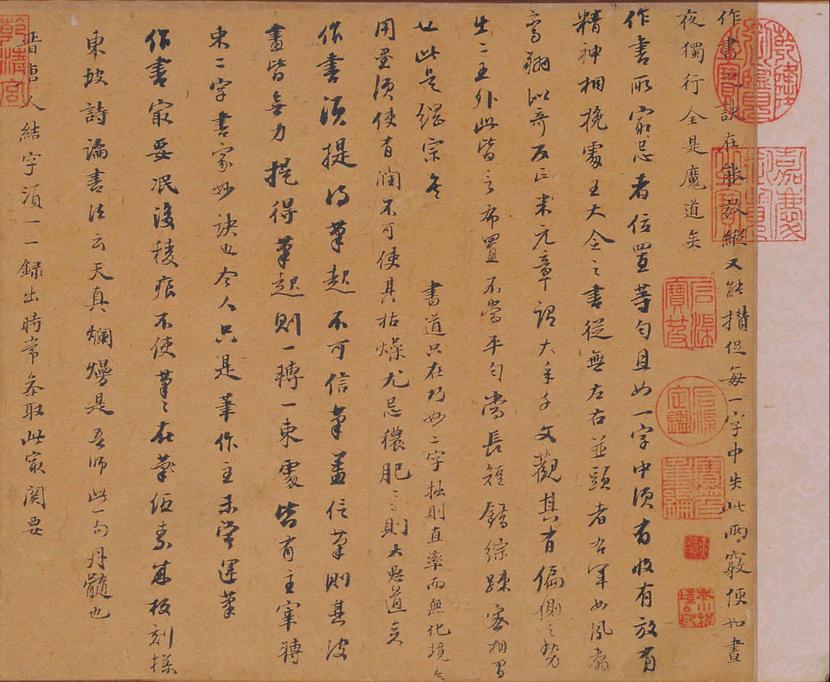 作書訣在能放縱又能攢促每一字中失此兩竅便如晝
夜獨行全是魔道矣
作書所最忌者位置等勻且如一字中須有收有放有
精神相挽處王大令之書從無左右並頭者右軍如鳳翥
鸞翔似奇反正米元章謂大年千文觀其有偏側之勢
出二王外此皆言布置不當平勻當長短錯綜疎密相間
也此是綱宗
書道只在巧妙二字拙則直率而無化境矣
用墨須使有潤不可使其枯燥尤忌穠肥穠肥則大惡道矣
作書須提得筆起不可信筆蓋信筆則其波
畫皆無力提得筆起則一轉一束處皆有主宰轉
束二字書家妙訣也今人只是筆作主未嘗運筆
作書最要泯沒稜痕不使筆筆在紙素成板刻樣
東坡詩論書法云天真爛熳是吾師此一句丹髓也
晉唐人結字須一一錄出時常參取此最關要